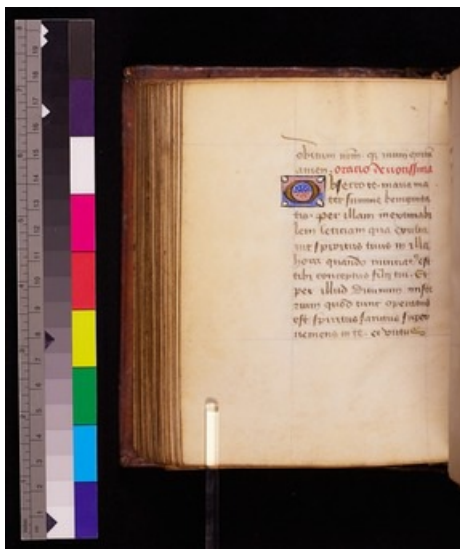 obitum nrm. qi
amen. Oratio deuotissima
Obsecro te maria ma
ter summe benignita
tis. per illam inextimabi
lem leticiam qua exulta
uit spiritus tuus in illa
hora quando nunciat⁹ est
tibi conceptus filij tui. Et
per illud diuinum miste
rium quod tunc operatus
est spiritus sanctus super
ueniens in te. et virtus